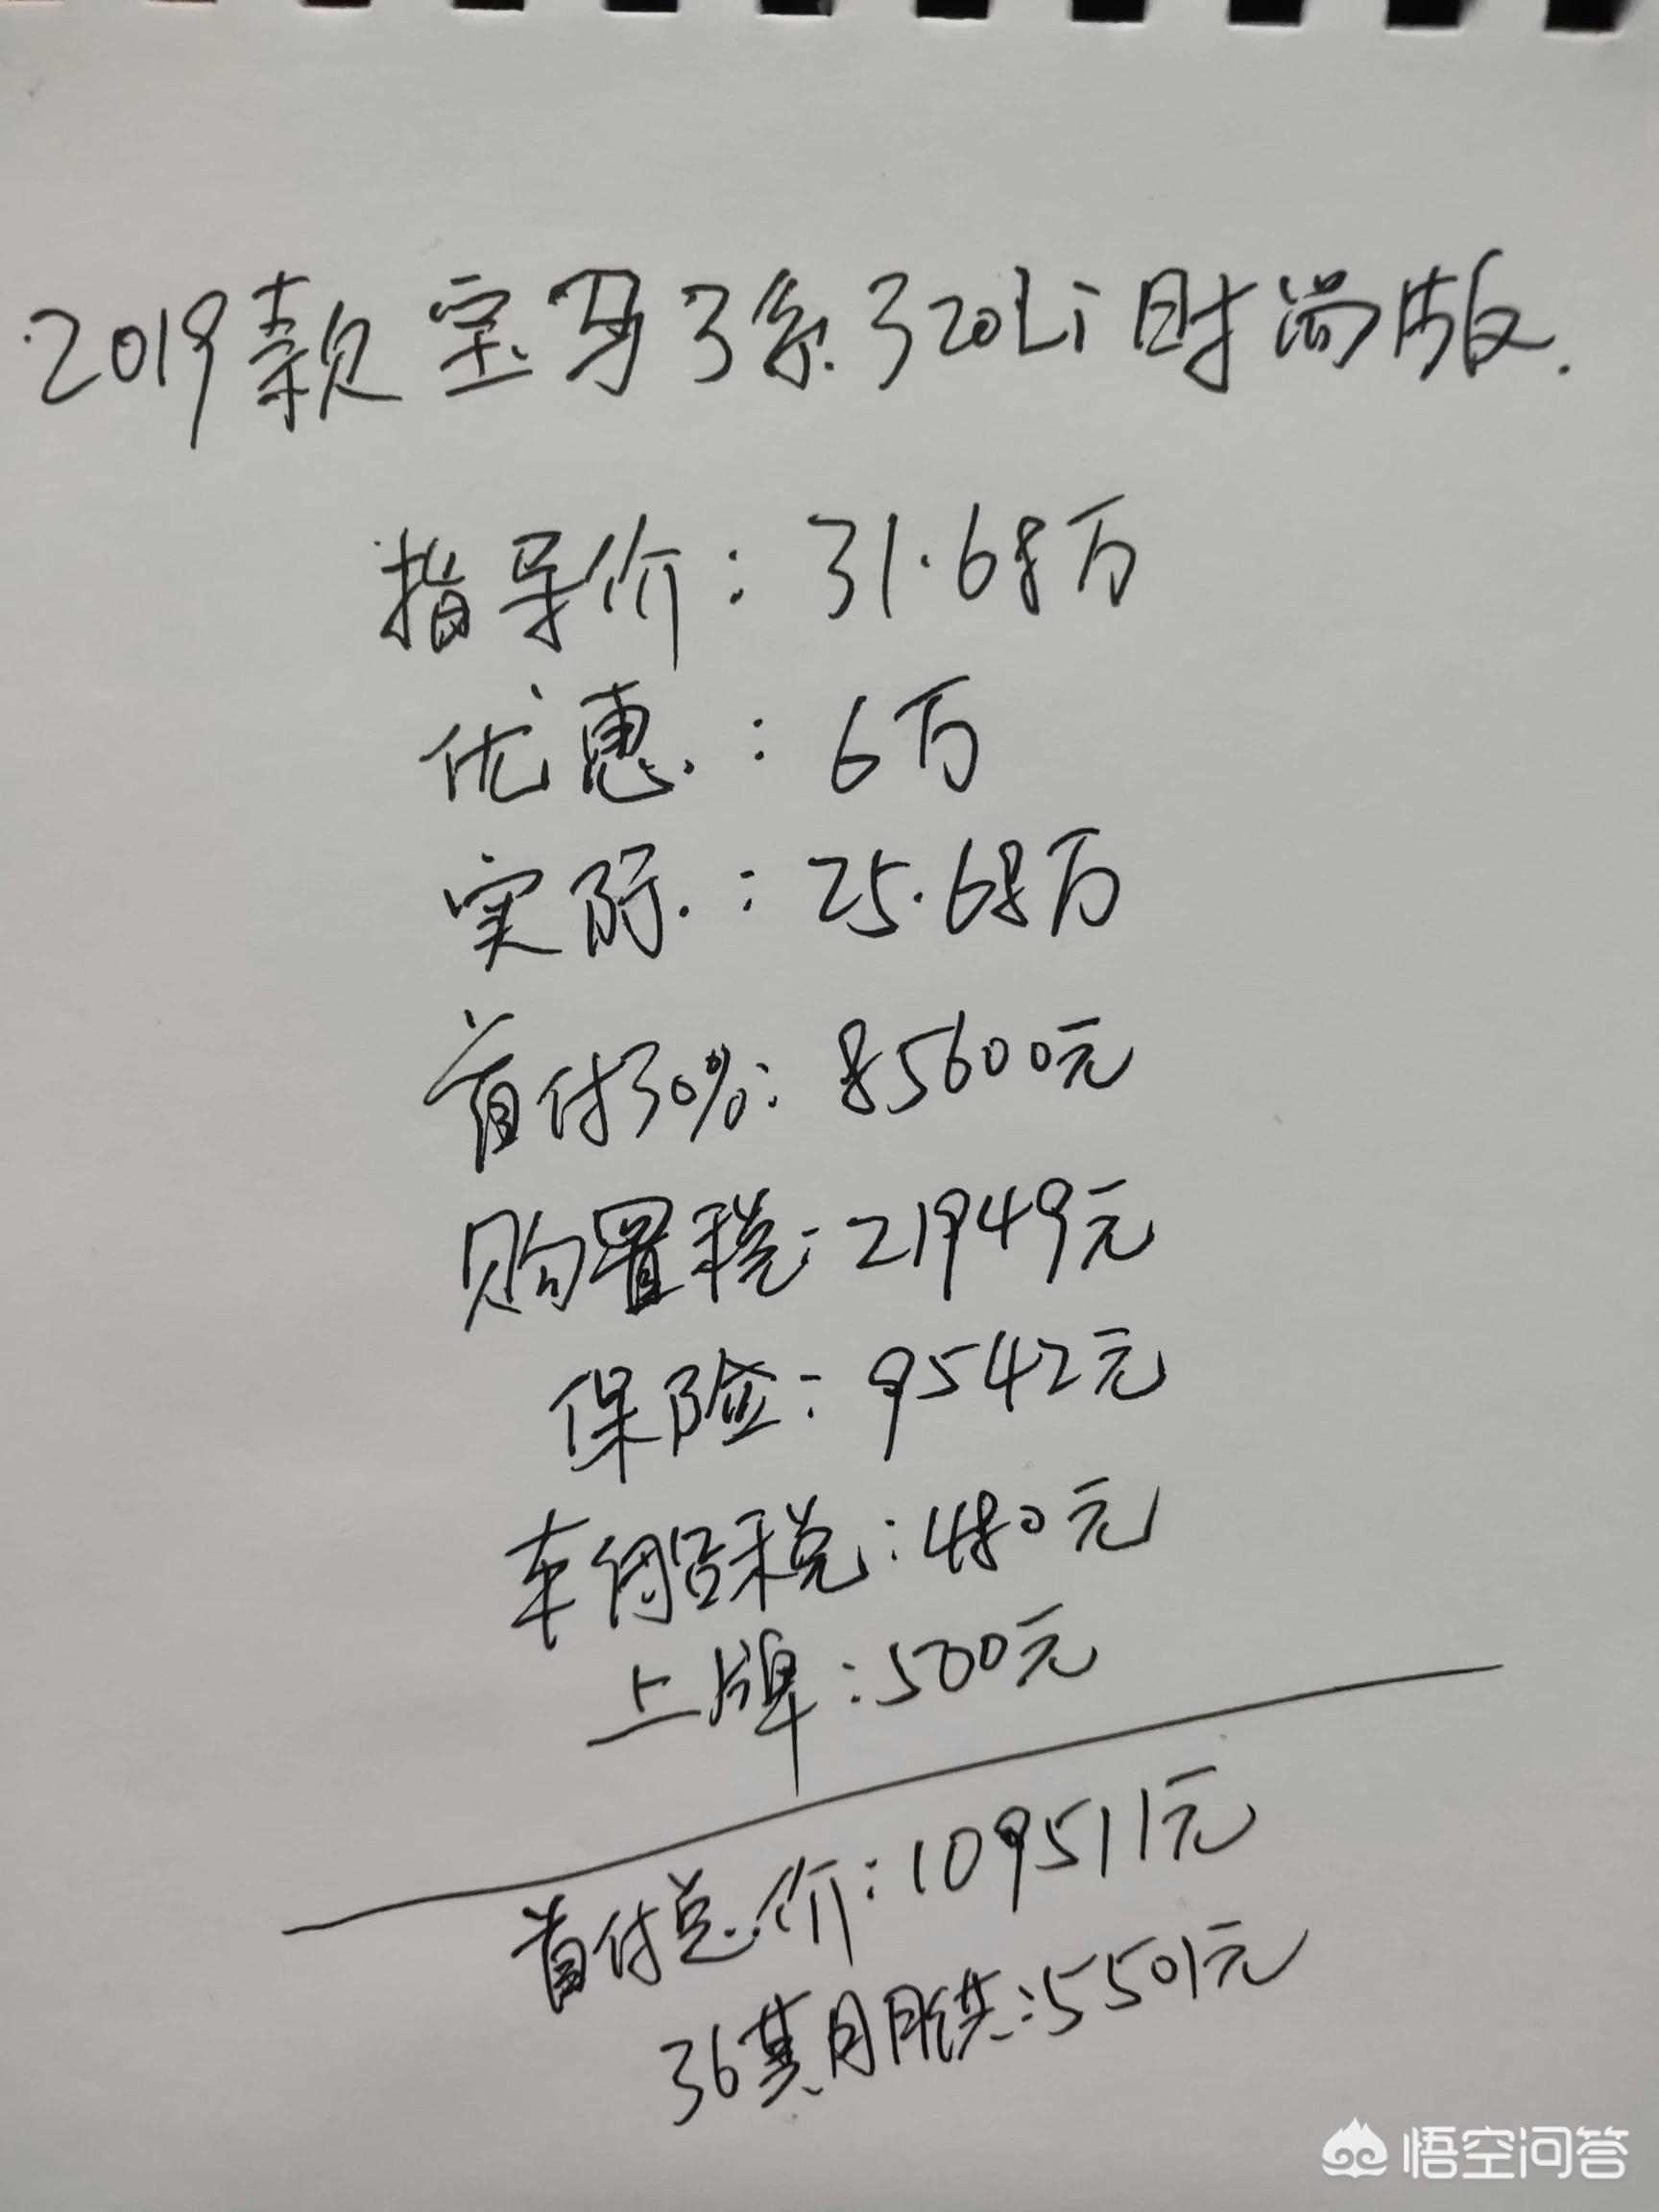 2019款宝马3系320Li时尚版.
指导价:31.68万
优惠.:6万
实际.:25.68万
首付30%:85600元
购置税:21949元
保险:9542元
车船税:480元
上牌:500元
首付总价:109511元
36期月供:5501元
悟空问答